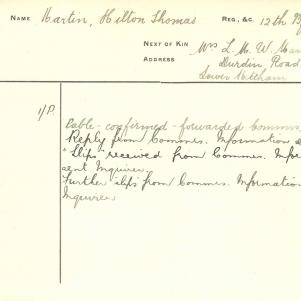 NAME Martin, Hilton Thomas REG. &C. 12th B
NEXT OF KIN Mrs L. M. W. Mar
ADDRESS Durdin Road
Lower Mitcham
1/P.
Cable - confirmed - forwarded Commns
Reply from Commns. Information s
"Slips" received from Commes. Infor
sent Inquirer
Further slips from Commes. Information
Inquirer